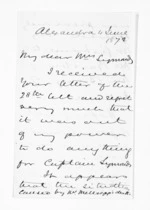 Alexandra 6 June
1878
My dear Mrs
I received
Your letter of the
28th ult and regret
very much that
it was out
of my power
to do anything
for Captain
It appears
that the